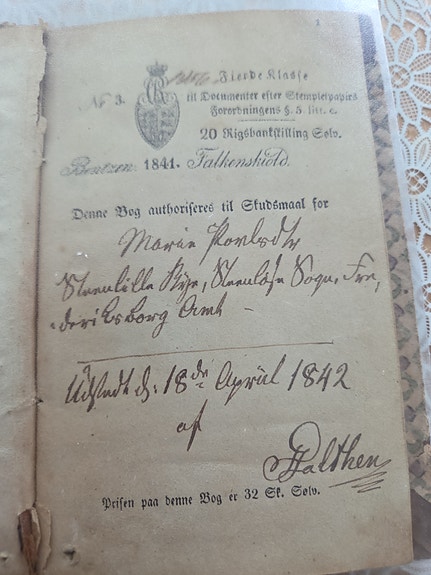 1
Fierde Klasse
No 3. til Documenter efter Stempelpapirs
Forordningens §. 5. litr. c.
20 Rigsbankskilling Sølv.
Bentzen. 1841. Falkenskiold.
Denne Bog authoriseres til Skudsmaal for
Marie
Steenlille Sogn, Fre,
deriksborg Amt
Udstedt d: 18de April 1842
af
Palthen
Prisen paa denne Bog er 32 Sk. Sølv.